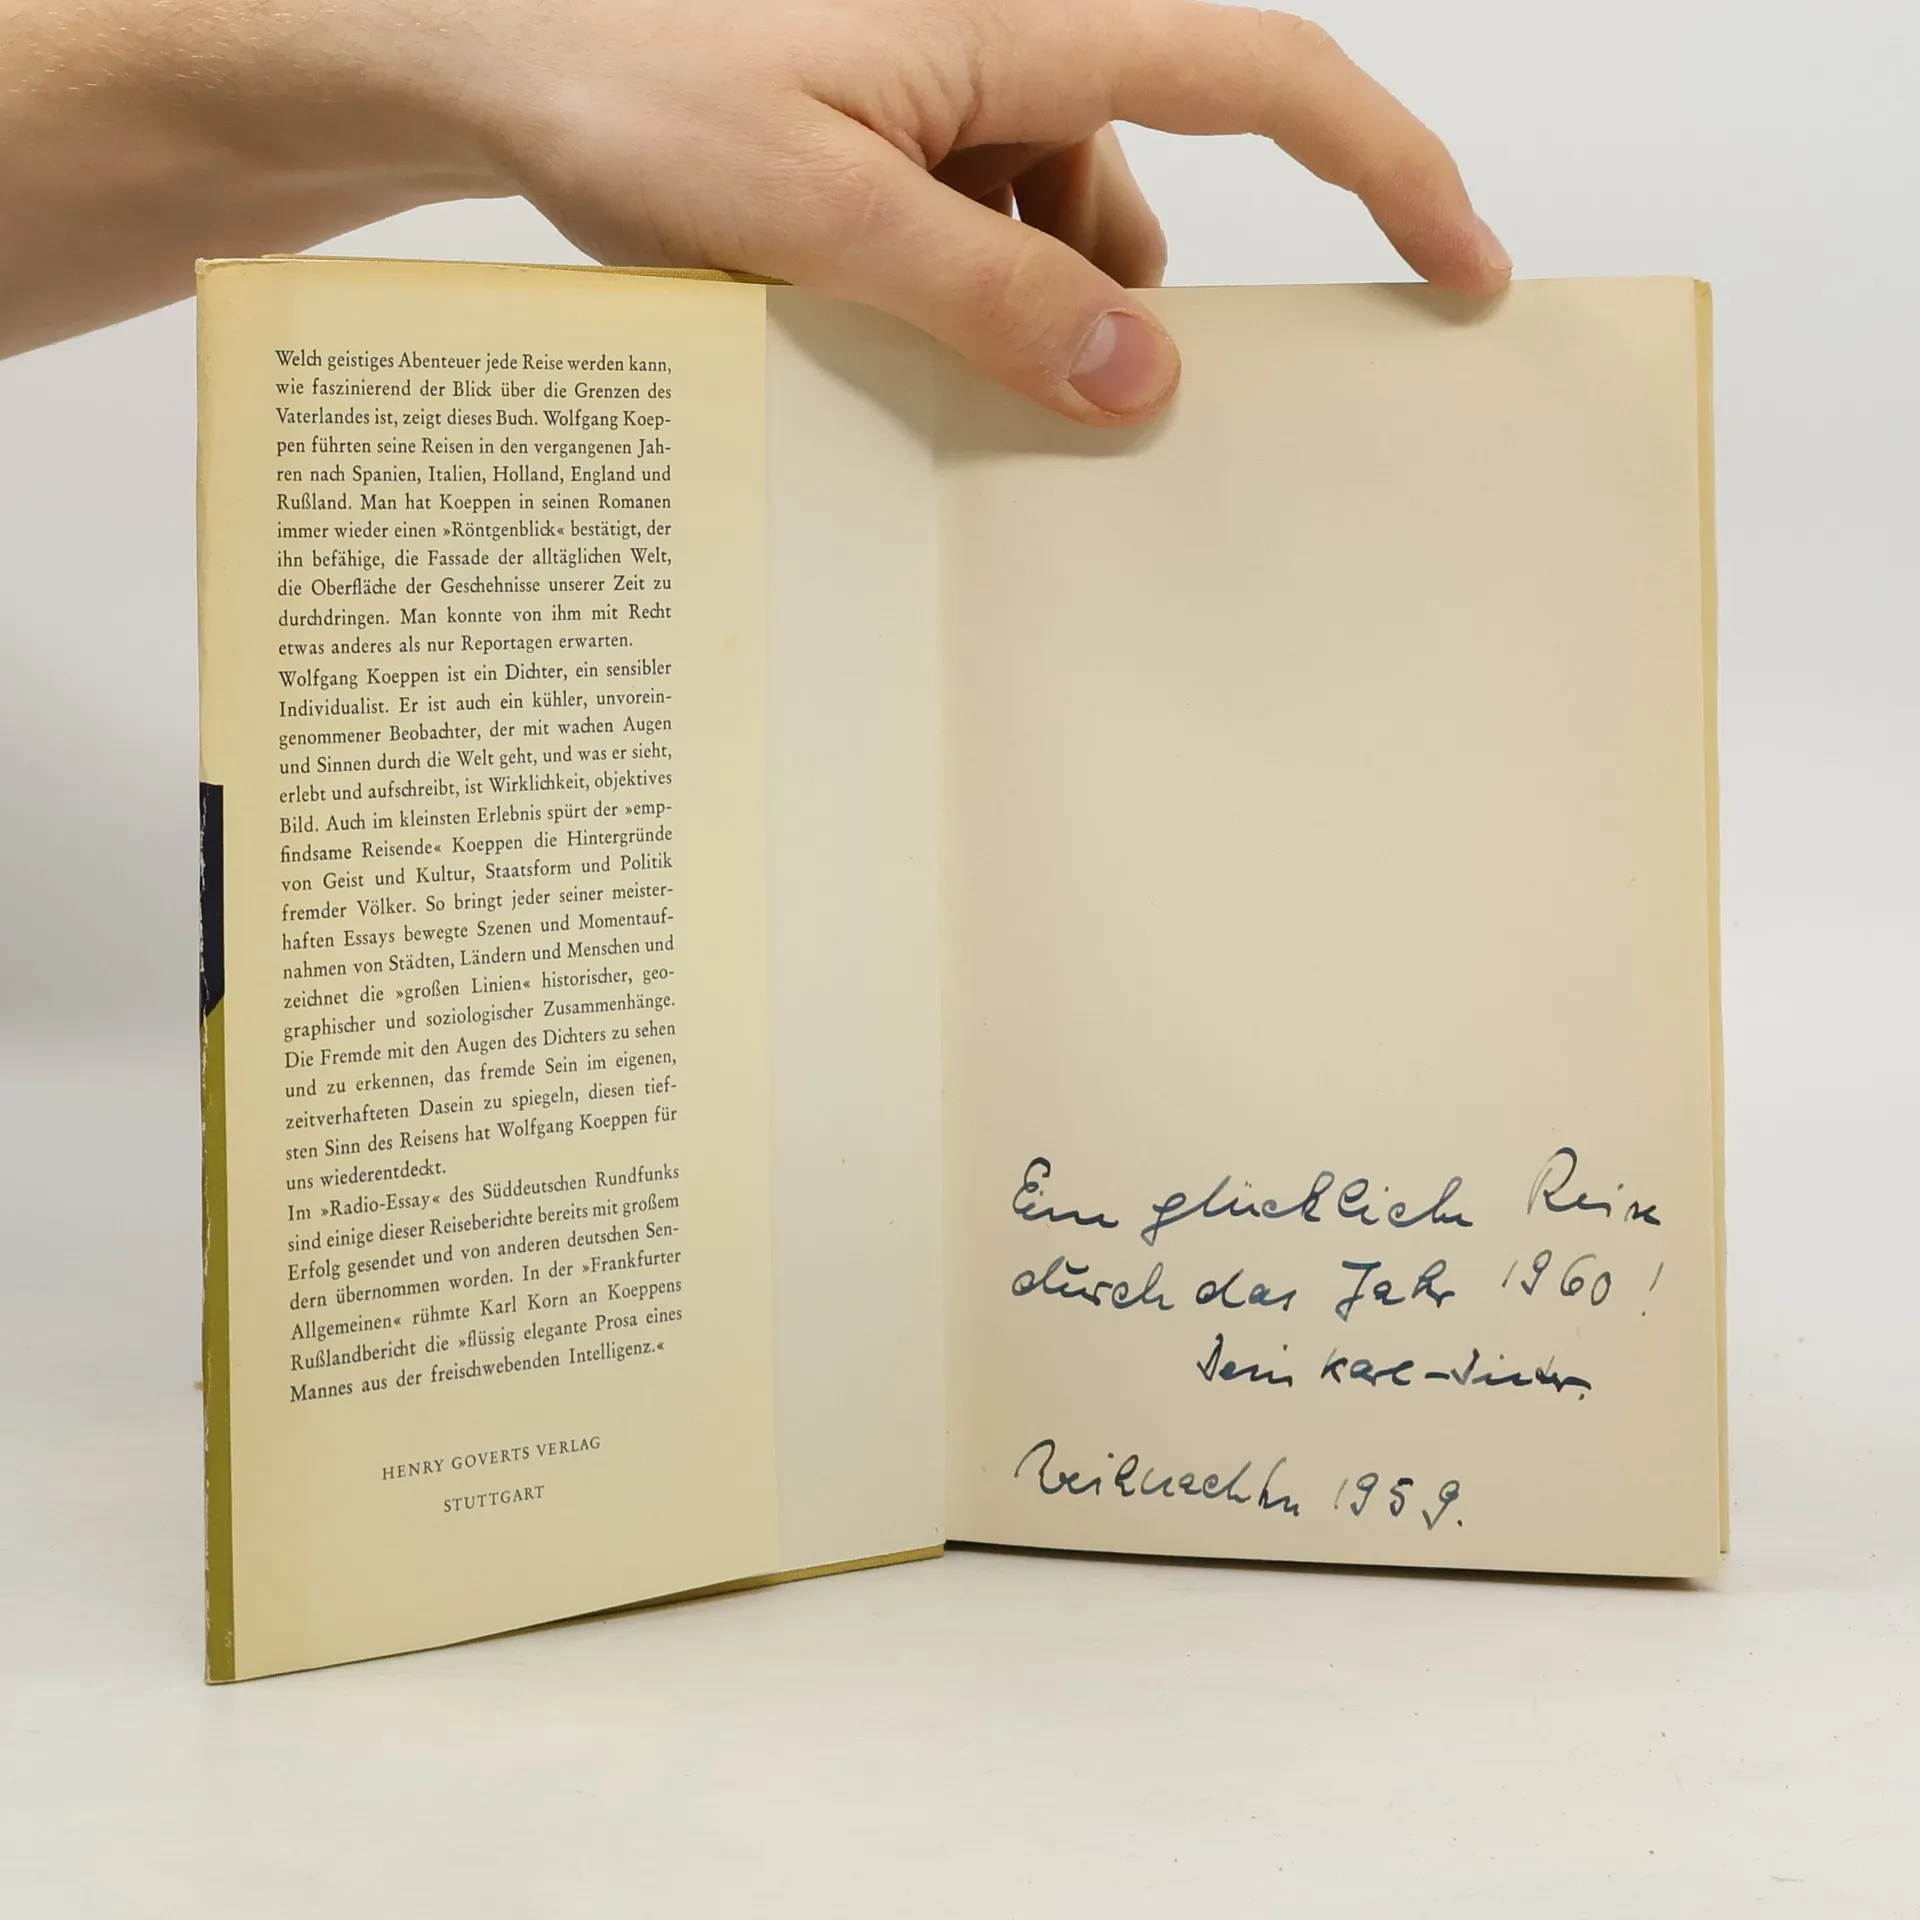 Welch geistiges Abenteuer jede Reise werden kann,
wie faszinierend der Blick über die Grenzen des
Vaterlandes ist, zeigt dieses Buch. Wolfgang Koep-
pen führten seine Reisen in den vergangenen Jah-
ren nach Spanien, Italien, Holland, England und
Rußland. Man hat Koeppen in seinen Romanen
immer wieder einen »Röntgenblick« bestätigt, der
ihn befähige, die Fassade der alltäglichen Welt,
die Oberfläche der Geschehnisse unserer Zeit zu
durchdringen. Man konnte von ihm mit Recht
etwas anderes als nur Reportagen erwarten.
Wolfgang Koeppen ist ein Dichter, ein sensibler
Individualist. Er ist auch ein kühler, unvorein-
genommener Beobachter, der mit wachen Augen
und Sinnen durch die Welt geht, und was er sieht,
erlebt und aufschreibt, ist Wirklichkeit, objektives
Bild. Auch im kleinsten Erlebnis spürt der »emp-
findsame Reisende« Koeppen die Hintergründe
von Geist und Kultur, Staatsform und Politik
fremder Völker. So bringt jeder seiner meister-
haften Essays bewegte Szenen und Momentauf-
nahmen von Städten, Ländern und Menschen und
zeichnet die »großen Linien« historischer, geo-
graphischer und soziologischer Zusammenhänge.
Die Fremde mit den Augen des Dichters zu sehen
und zu erkennen, das fremde Sein im eigenen,
zeitverhafteten Dasein zu spiegeln, diesen tief-
sten Sinn des Reisens hat Wolfgang Koeppen für
uns wiederentdeckt.
Im »Radio-Essay« des Süddeutschen Rundfunks
sind einige dieser Reiseberichte bereits mit großem
Erfolg gesendet und von anderen deutschen Sen-
dern übernommen worden. In der »Frankfurter
Allgemeinen« rühmte Karl Korn an Koeppens
Rußlandbericht die »flüssig elegante Prosa eines
Mannes aus der freischwebenden Intelligenz.«
HENRY GOVERTS VERLAG
STUTTGART
Eine glückliche Reise
durch das Jahr 1960!
Dein Karl-Dieter.
Weihnachten 1959.